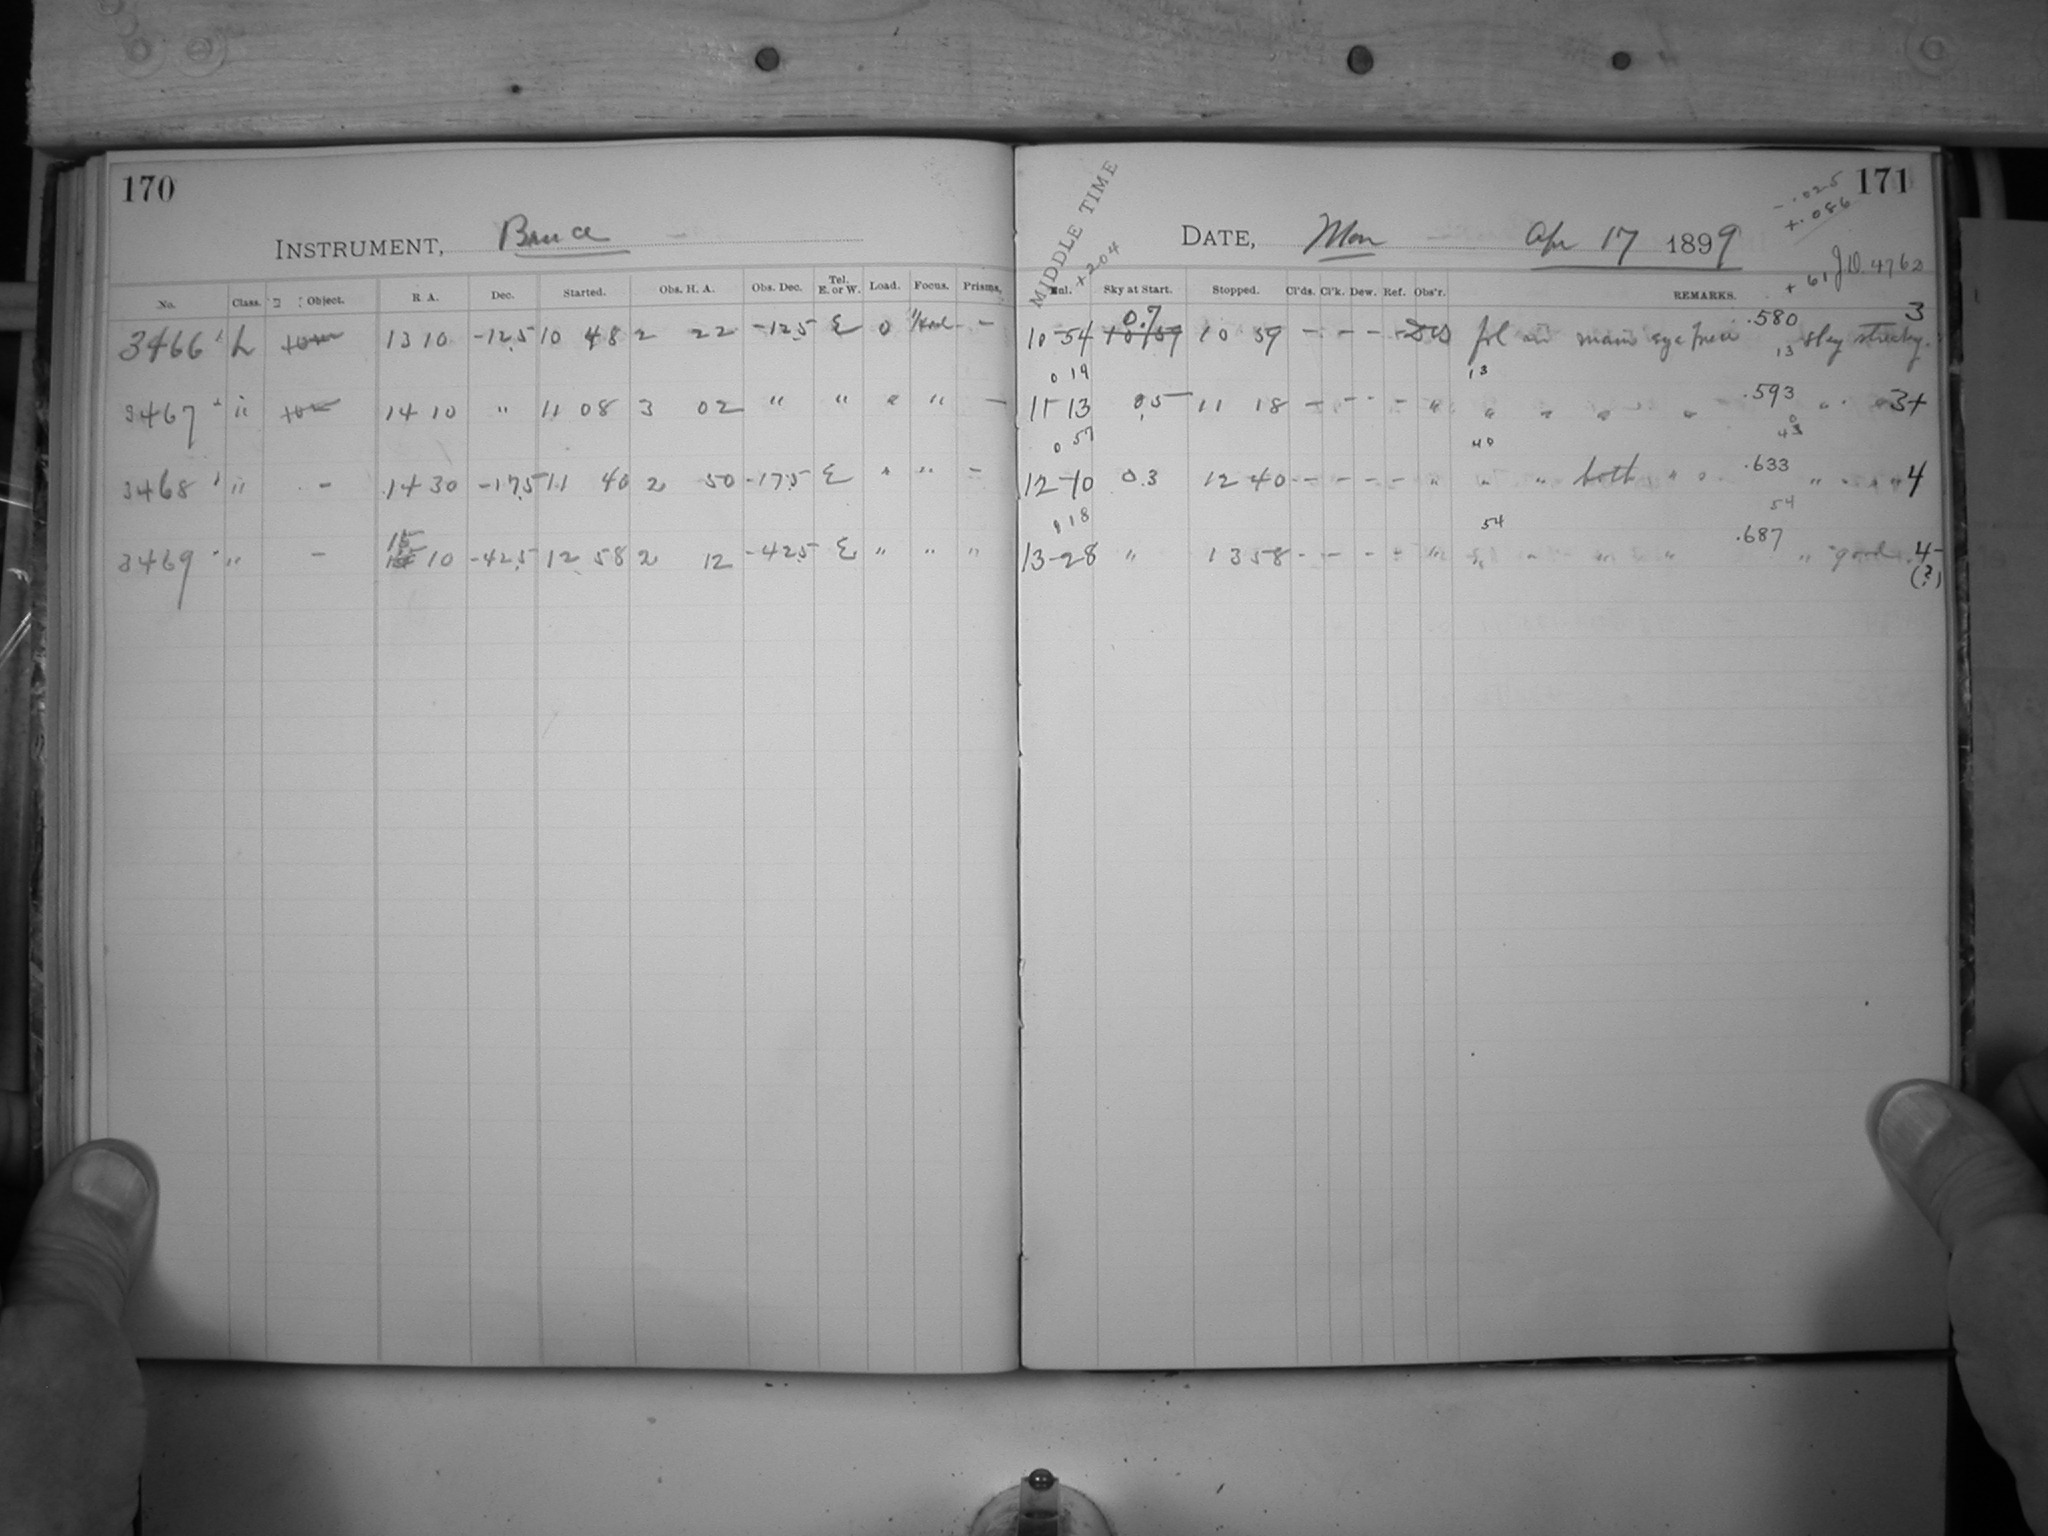 170
INSTRUMENT, Bruce
No. Class. Object. R. A. Dec. Started. Obs. H. A. Obs. Dec. Tel. E. or W. Load. Focus. Prisms,
3466 L 13 10 -12.5 10 48 2 22 -12.5 E 0 -
3467 " 14 10 " 11 08 3 02 " " " " -
3468 " - 14 30 -17.5 11 40 2 50 -17.5 E " " -
3469 " - 15 10 -42.5 12 58 2 12 -42.5 E " " "
MIDDLE TIME
+204
171
-.025
+.086
DATE, Mon Apr 17 1899
+61 J.D. 4762
Sky at Start. Stopped. Cl'ds. Cl'k. Dew. Ref. Obs'r. REMARKS.
0.7 .580 3
10-54 10 59 10 59 - - - - main eye piece 13 sky streaky
0 19 13
11-13 0.5 11 18 - - - - " " " " " .593 " " 3+
0 57 40
12-10 0.3 12 40 - - - - " " " both " " .633 " " " 4
18 54 54
13-28 " 13 58 - - - - " " " " .687 " good 4-
(?)